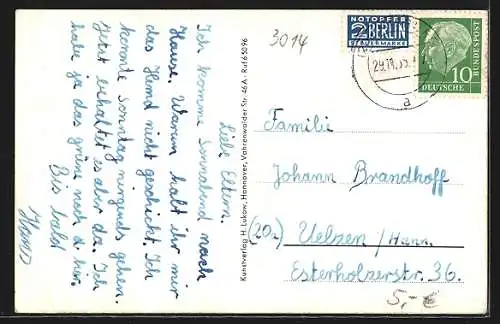 Liebe Eltern.
Ich komme Sonnabend nach
Hause. Warum habt ihr mir
das Hemd nicht geschickt. Ich
konnte Sonntag nirgends gehen.
Jetzt behaltet es aber da. Ich
habe ja das grüne noch hier.
Bis bald
Hans
Kunstverlag H. Lukow, Hannover, Vahrenwalder Str. 46A · Ruf 65096
3014
NOTOPFER
2 BERLIN
STEUERMARKE
a
10
DEUTSCHE
BUNDESPOST
Familie
Johann Brandhoff
(20a) Uelzen/Hann.
Esterholzerstr. 36.
5,- €